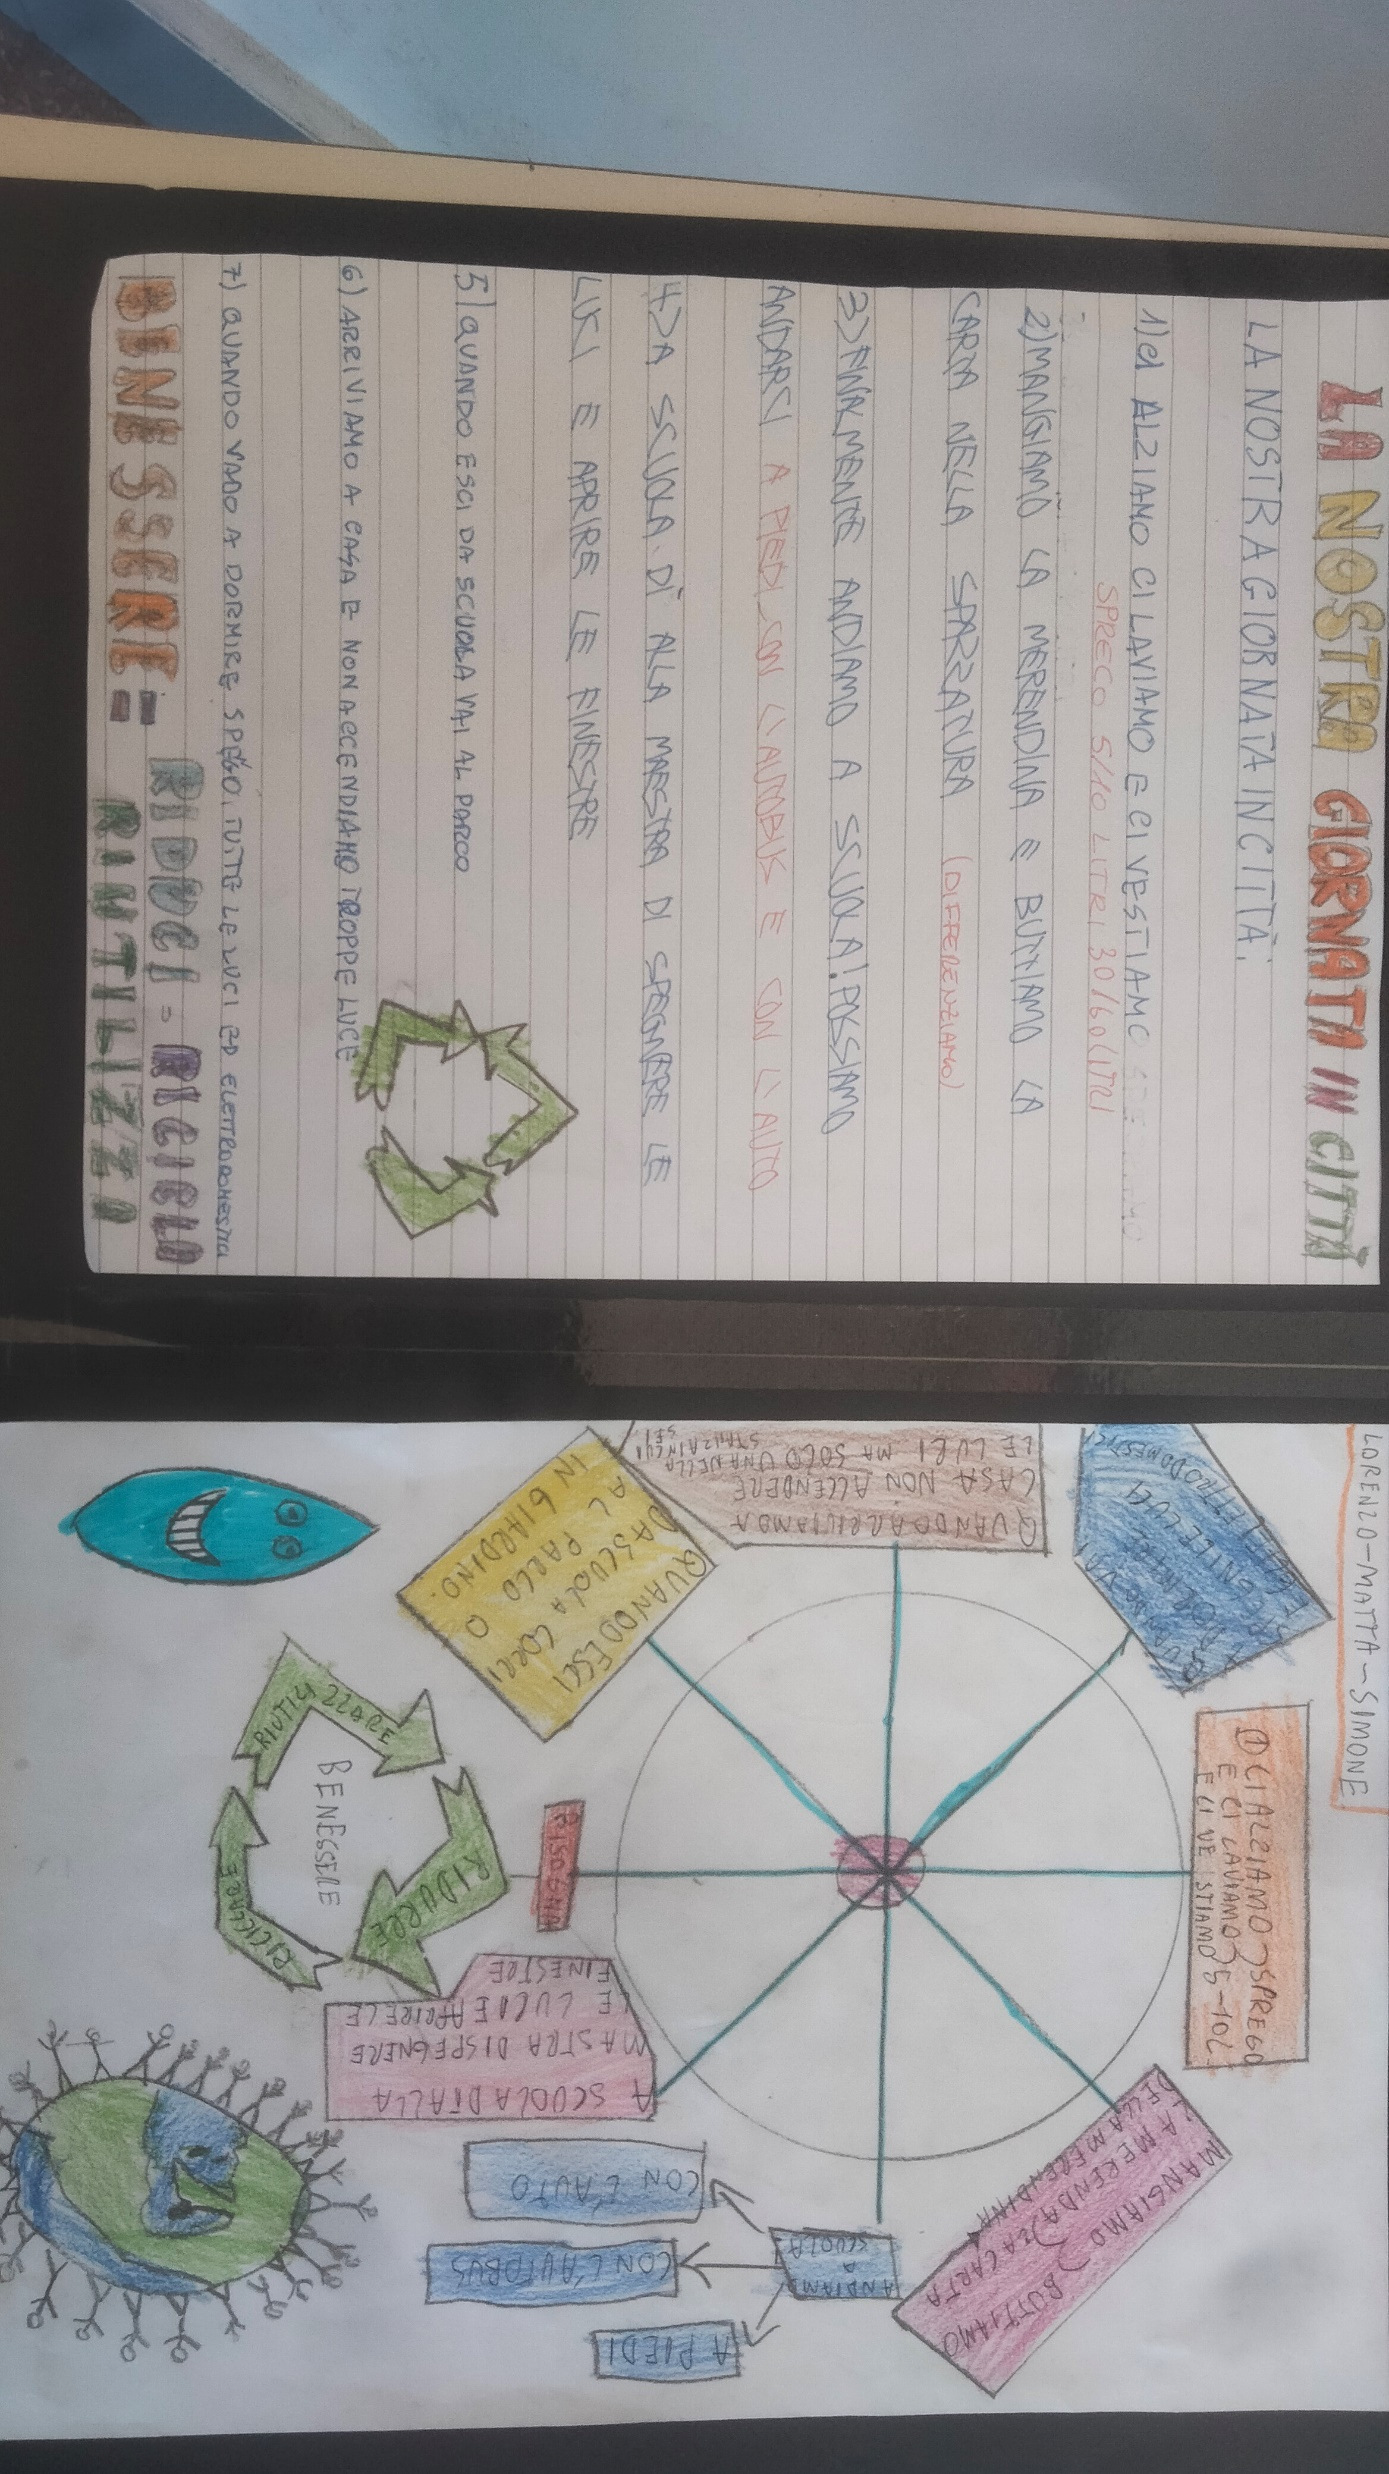 LA NOSTRA GIORNATA IN CITTÀ
LA NOSTRA GIORNATA IN CITTÀ:
1) CI ALZIAMO CI LAVIAMO E CI VESTIAMO
SPRECO 5/10 LITRI 30/60 LITRI
2) MANGIAMO LA MERENDINA E BUTTIAMO LA
CARTA NELLA SPAZZATURA (DIFFERENZIAMO)
3) FINARMENTE ANDIAMO A SCUOLA! POSSIAMO
ANDARCI A PIEDI, CON L'AUTOBUS E CON L'AUTO
4) A SCUOLA DÌ ALLA MAESTRA DI SPEGNERE LE
LUCI E APRIRE LE FINESTRE
5) QUANDO ESCI DA SCUOLA VAI AL PARCO
6) ARRIVIAMO A CASA E NON ACCENDIAMO TROPPE LUCE
7) QUANDO VADO A DORMIRE SPEGO TUTTE LE LUCI ED ELETTRODOMESTICI
BENESSERE =
RIDUCI - RICICLO
RINTILIZZO
LORENZO-MATTA-SIMONE
① CI ALZIAMO SPREGO
E CI LAVIAMO 5-10L
E CI VE STIAMO
MANGIAMO BUTTIAMO
LA MERENDA LA CARTA
DELLA MERENDINA
ANDIAMO
A
SCUOLA
A PIEDI
CON L'AUTOBUS
CON L'AUTO
A SCUOLA DI ALLA
MASTRA DI SPEGNERE
LE LUCI E APRIRE LE
FINESTRE
BISOGNA
QUANDO ESCI
DA SCUOLA CORRI
AL PARCO O
IN GIARDINO.
QUANDO ARRIVIAMO A
CASA NON ACCENDERE
LE LUCI MA SOLO UNA NELLA
STANZA IN CUI
SEI
QUANDO VAI
A DORMIRE
SPEGNI LE LUCI
ELETTRODOMESTICI
RIUTILIZZARE
RIDURRE
RICICLARE
BENESSERE